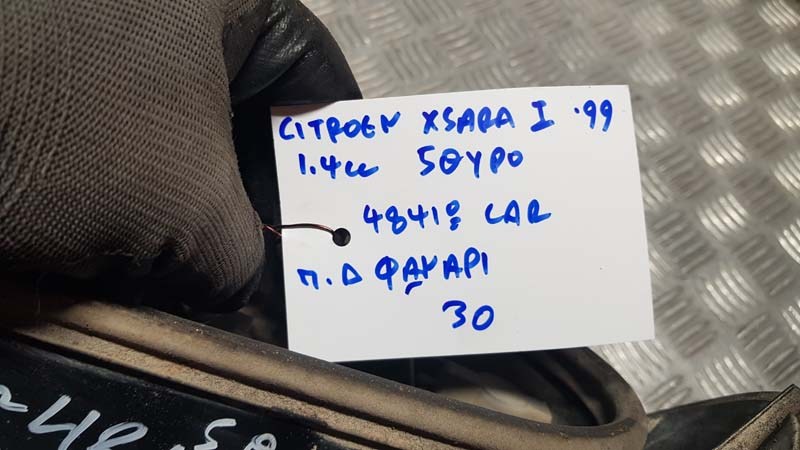 CITROEN XSARA I '99
1.4cc 5ΘΥΡΟ
4841º CAR
Π.Δ ΦΑΝΑΡΙ
30